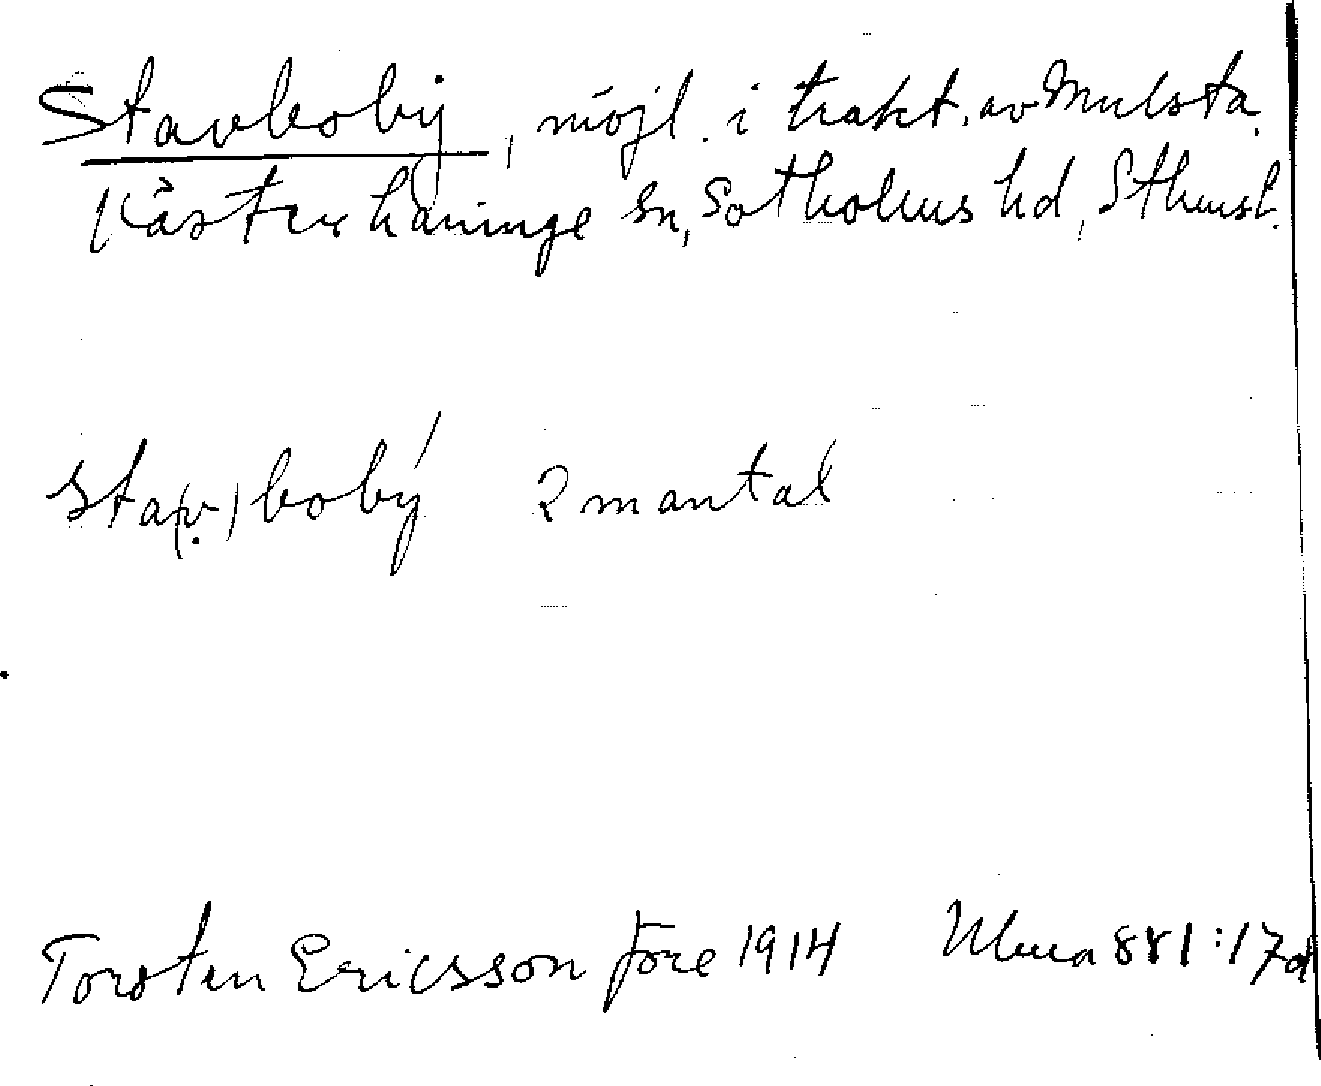 Stavboby, möjl. i trakt. av Mulsta.
Västerhaninge sn, Sotholms hd, Sthmsl.
sta(v.)bobý 2 mantal
Torsten Ericsson före 1914 Ulma 881:17a